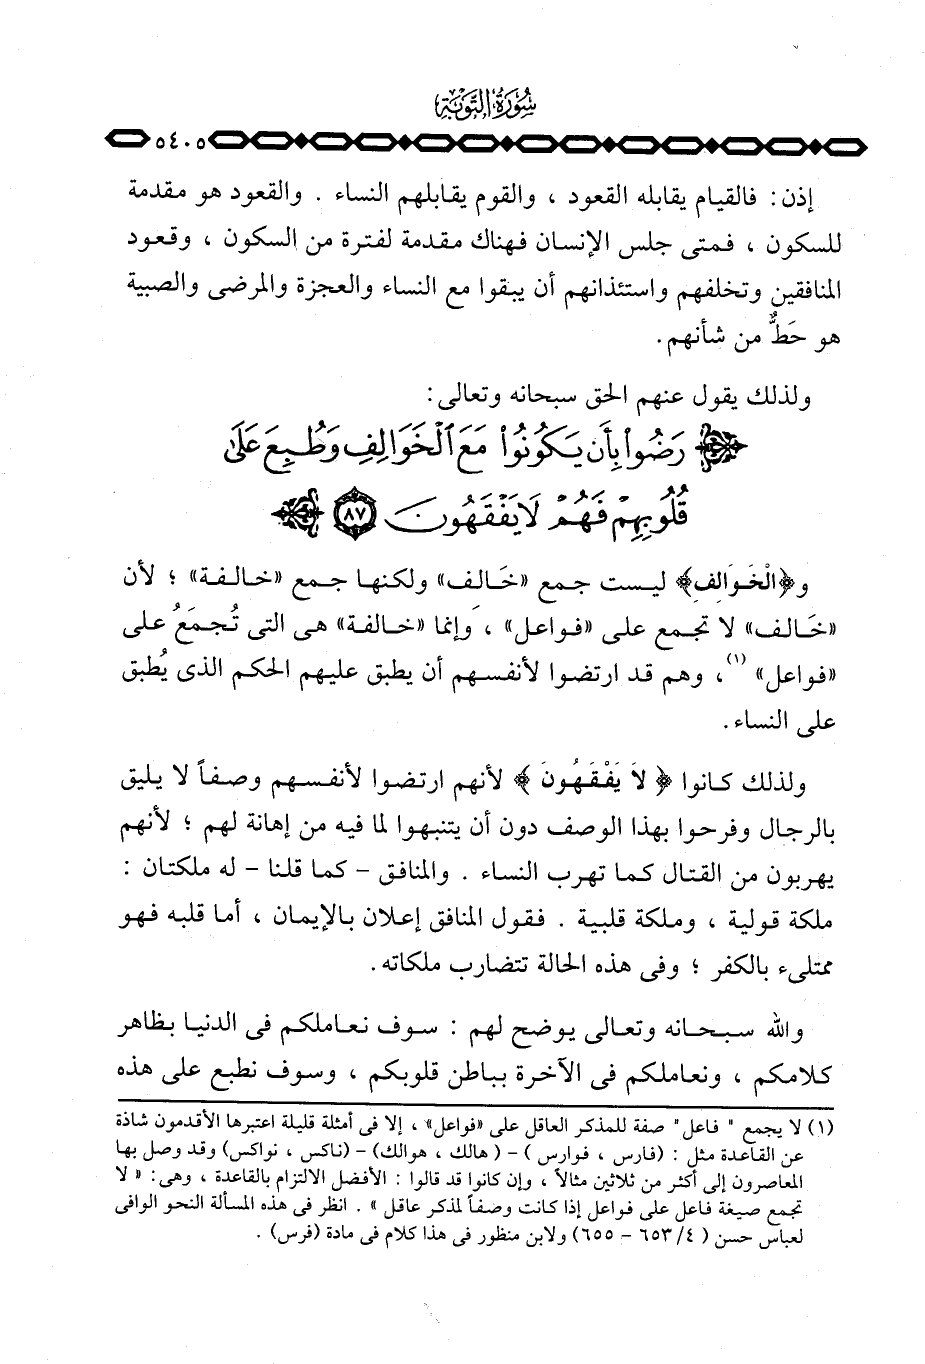 سورة التوبة
٥٤٠٥
إذن : فالقيام يقابله القعود ، والقوم يقابلهم النساء . والقعود هو مقدمة
للسكون ، فمتى جلس الإنسان فهناك مقدمة لفترة من السكون ، وقعود
المنافقين وتخلفهم واستئذانهم أن يبقوا مع النساء والعجزة والمرضى والصبية
هو حَطٌّ من شأنهم.
ولذلك يقول عنهم الحق سبحانه وتعالى :
رَضُوا۟ بِأَن يَكُونُوا۟ مَعَ ٱلْخَوَالِفِ وَطُبِعَ عَلَىٰ
قُلُوبِهِمْ فَهُمْ لَا يَفْقَهُونَ ٨٧
و﴿الْخَوَالِفِ﴾ ليست جمع «خَالف» ولكنها جمع «خالفة» ؛ لأن
«خَالف» لا تجمع على «فواعل» ، وإنما «خالفة» هى التى تُجمَعُ على
«فواعل» (١)، وهم قد ارتضوا لأنفسهم أن يطبق عليهم الحكم الذى يُطبق
على النساء .
ولذلك كانوا ﴿ لاَ يَفْقَهُونَ ﴾ لأنهم ارتضوا لأنفسهم وصفاً لا يليق
بالرجال وفرحوا بهذا الوصف دون أن يتنبهوا لما فيه من إهانة لهم ؛ لأنهم
يهربون من القتال كما تهرب النساء . والمنافق – كما قلنا – له ملكتان :
ملكة قولية ، وملكة قلبية . فقول المنافق إعلان بالإيمان ، أما قلبه فهو
ممتلىء بالكفر ؛ وفى هذه الحالة تتضارب ملكاته.
والله سبحانه وتعالى يوضح لهم : سوف نعاملكم فى الدنيا بظاهر
كلامكم ، ونعاملكم فى الآخرة بباطن قلوبكم ، وسوف نطبع على هذه
(١) لا يجمع " فاعل" صفة للمذكر العاقل على «فواعل» ، إلا فى أمثلة قليلة اعتبرها الأقدمون شاذة
عن القاعدة مثل : (فارس ، فوارس ) – ( هالك ، هوالك) – (ناكس ، نواكس) وقد وصل بها
المعاصرون إلى أكثر من ثلاثين مثالاً ، وإن كانوا قد قالوا : الأفضل الالتزام بالقاعدة ، وهى : « لا
تجمع صيغة فاعل على فواعل إذا كانت وصفاً لمذكر عاقل » . انظر فى هذه المسألة النحو الوافى
لعباس حسن ( ٤/ ٦٥٣ – ٦٥٥) ولابن منظور فى هذا كلام فى مادة (فرس) .